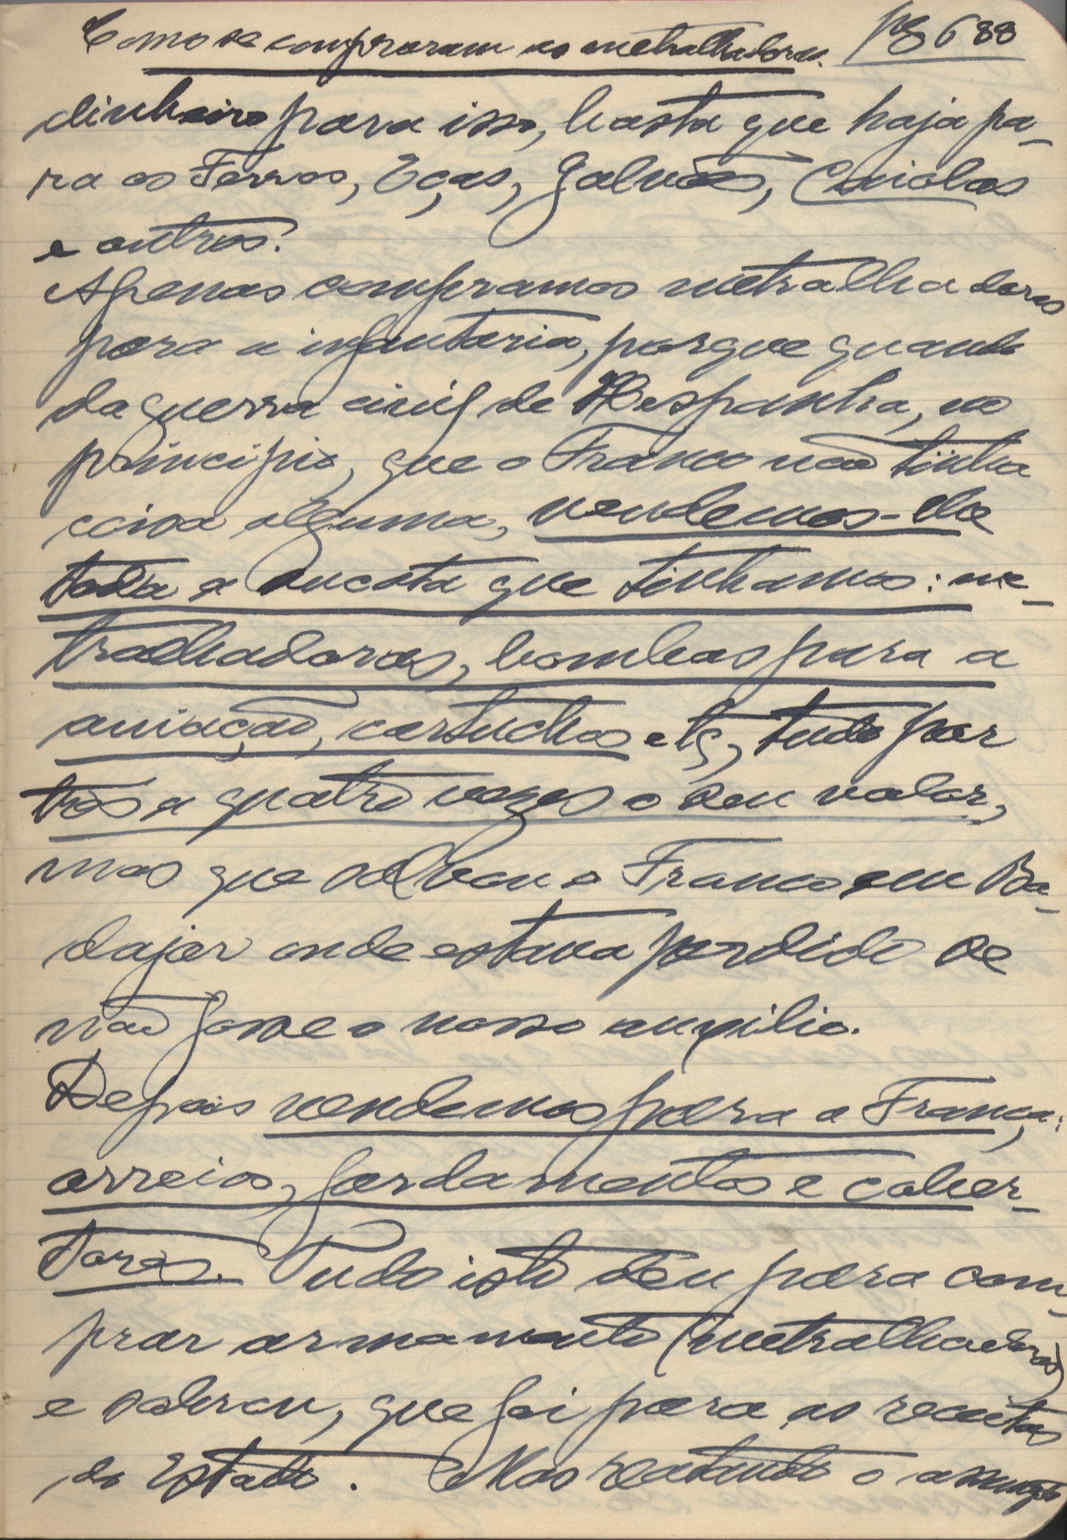 Como se compraram as metralhadoras. pg 688
dinheiro para isso, basta que haja pa-
ra os Ferros, Eças, Galvões, Quiolas
e outros.
Apenas compramos metralhadoras
para a infantaria, porque quando
da guerra civil de Hespanha, no
principio, que o Franco não tinha
coisa alguma, vendemos-lhe
toda a sucata que tinhamos: me-
tralhadoras, bombas para a
aviação, cartuchos etc, tudo por
tres a quatro vezes o seu valor,
mas que salvou o Franco em Ba-
dajoz onde estava perdido se
não fosse o nosso auxilio.
Depois vendemos para a França:
arreios, fardamentos e cober-
tores. Tudo isto deu para com-
prar armamento (metralhadoras)
e sobrou, que foi para as receitas
do Estado. Mas reatando o assumpto